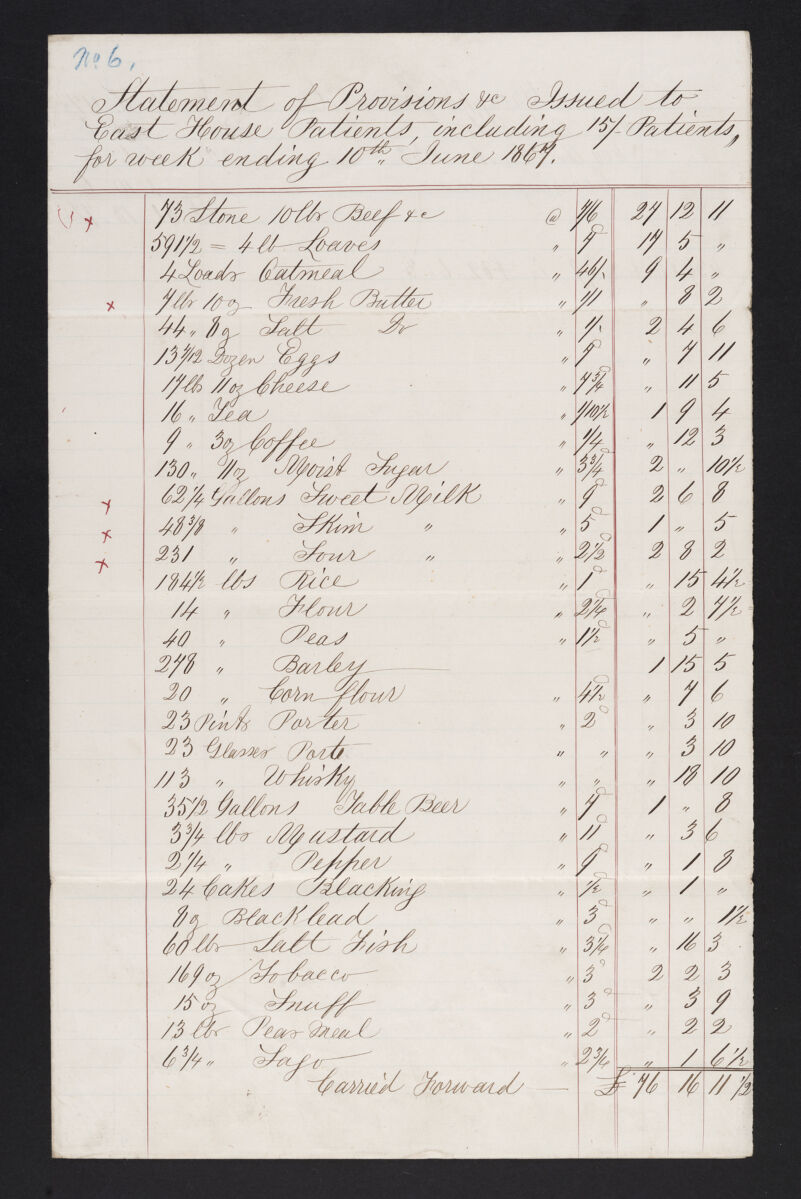 No. 6.
Statement of Provisions &c Issued to
East House Patients, including 15/ Patients,
for week ending 10th June 1867.
x 73 Stone 10lbs Beef &c @ 7/6 27 12 11
591 1/2 = 4 lb Loaves " 7 17 5 "
4 Loads Oatmeal " 46/- 9 4 "
x 7 lbs 10 oz Fresh Butter " 1/1 " 8 2
44 " 8 oz Salt Do " 1/- 2 4 6
13 7/12 Dozen Eggs " 7d " 7 11
17 lbs 11 oz Cheese " 7 3/4 " 11 5
16 " Tea " 1/10 1/2 1 9 4
9 " 3 oz Coffee " 1/4 " 12 3
130 " 11 oz Moist Sugar " 3 3/4 d 2 " 10 1/2
x 62 1/4 Gallons Sweet Milk " 9d 2 6 8
x 48 3/8 " Skim " " 5d 1 " 5
x 231 " Sour " " 2 1/2 d 2 8 2
184 1/2 lbs Rice " 1d " 15 4 1/2
14 " Flour " 2 1/4 d " 2 7 1/2
40 " Peas " 1 1/2 d " 5 "
278 " Barley 1 15 5
20 " Corn flour " 4 1/2 d " 7 6
23 Pints Porter " 2d " 3 10
23 Glasses Port " " " 3 10
113 " Whisky " " " 18 10
35 1/2 Gallons Table Beer " 7d 1 " 8
3 3/4 lbs Mustard " 11d " 3 6
2 1/4 " Pepper " 9d " 1 8
24 Cakes Blacking " 1/2 d " 1 "
8 oz Blacklead " 3d " " 1 1/2
60 lbs Salt Fish " 3 1/4 d " 16 3
169 oz Tobacco " 3d 2 2 3
15 oz Snuff " 3d " 3 9
13 lbs Peas meal " 2d " 2 2
6 3/4 " Sago " 2 3/4 " 1 6 1/2
Carried Forward — £ 76 16 11 1/2